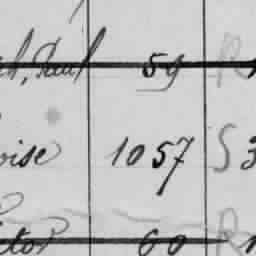 Paul 59 R
oise 1057 S 3
ctor 60 R